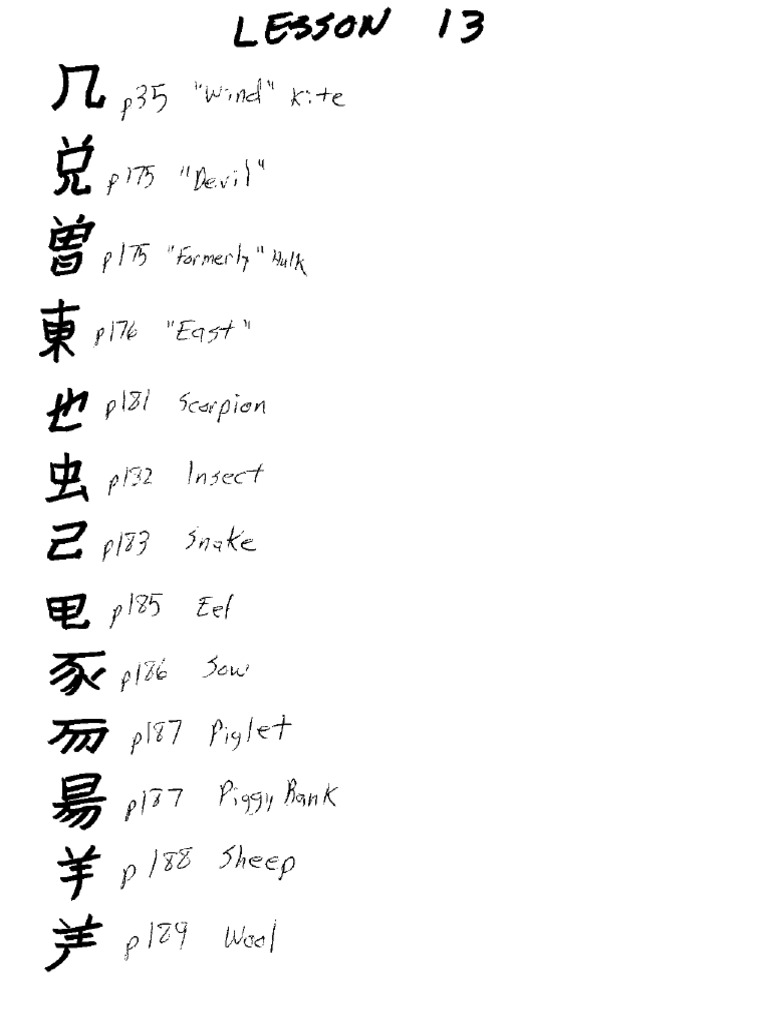 LESSON 13
几 p35 "Wind" Kite
兑 p175 "Devil"
曽 p175 "Formerly" Hulk
東 p176 "East"
也 p181 Scorpion
虫 p182 Insect
己 p183 Snake
电 p185 Eel
豕 p186 Sow
p187 Piglet
昜 p187 Piggy Bank
羊 p188 Sheep
p189 Wool